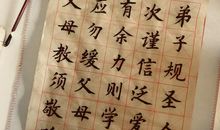 弟子规圣人
次谨信泛爱
有余力则学
应勿缓父母
父母教须敬